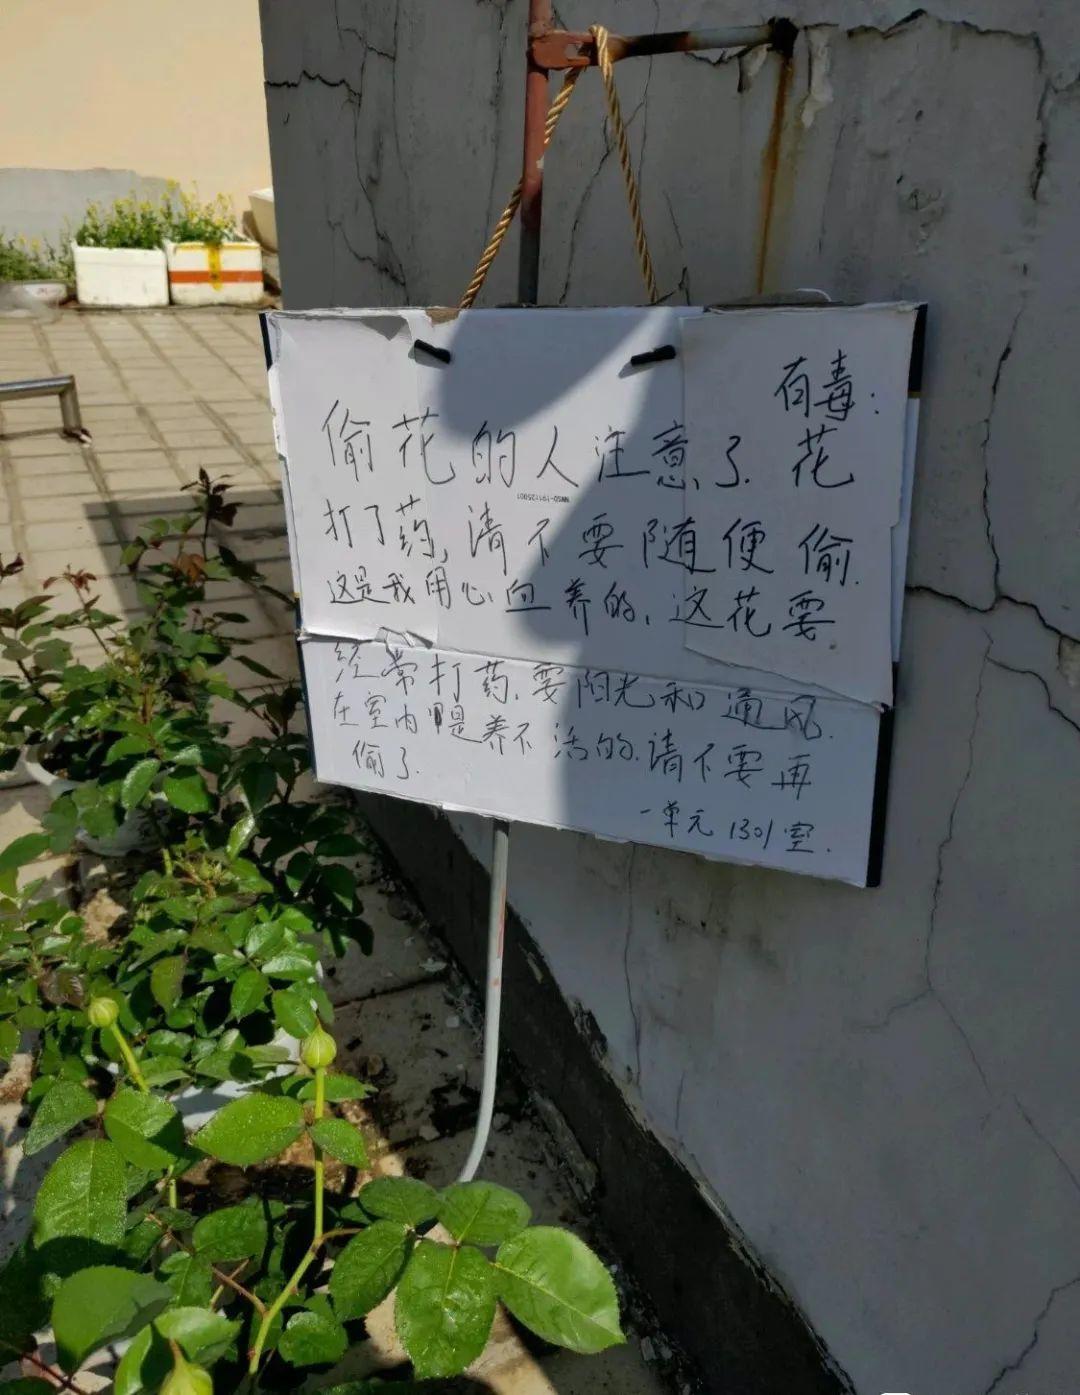 有毒:
偷花的人注意了.花
打了药,请不要随便偷.
这是我用心血养的,这花要
经常打药,要阳光和通风.
在室内是养不活的.请不要再
偷了.
一单元 1301室.
NNSO-191125001